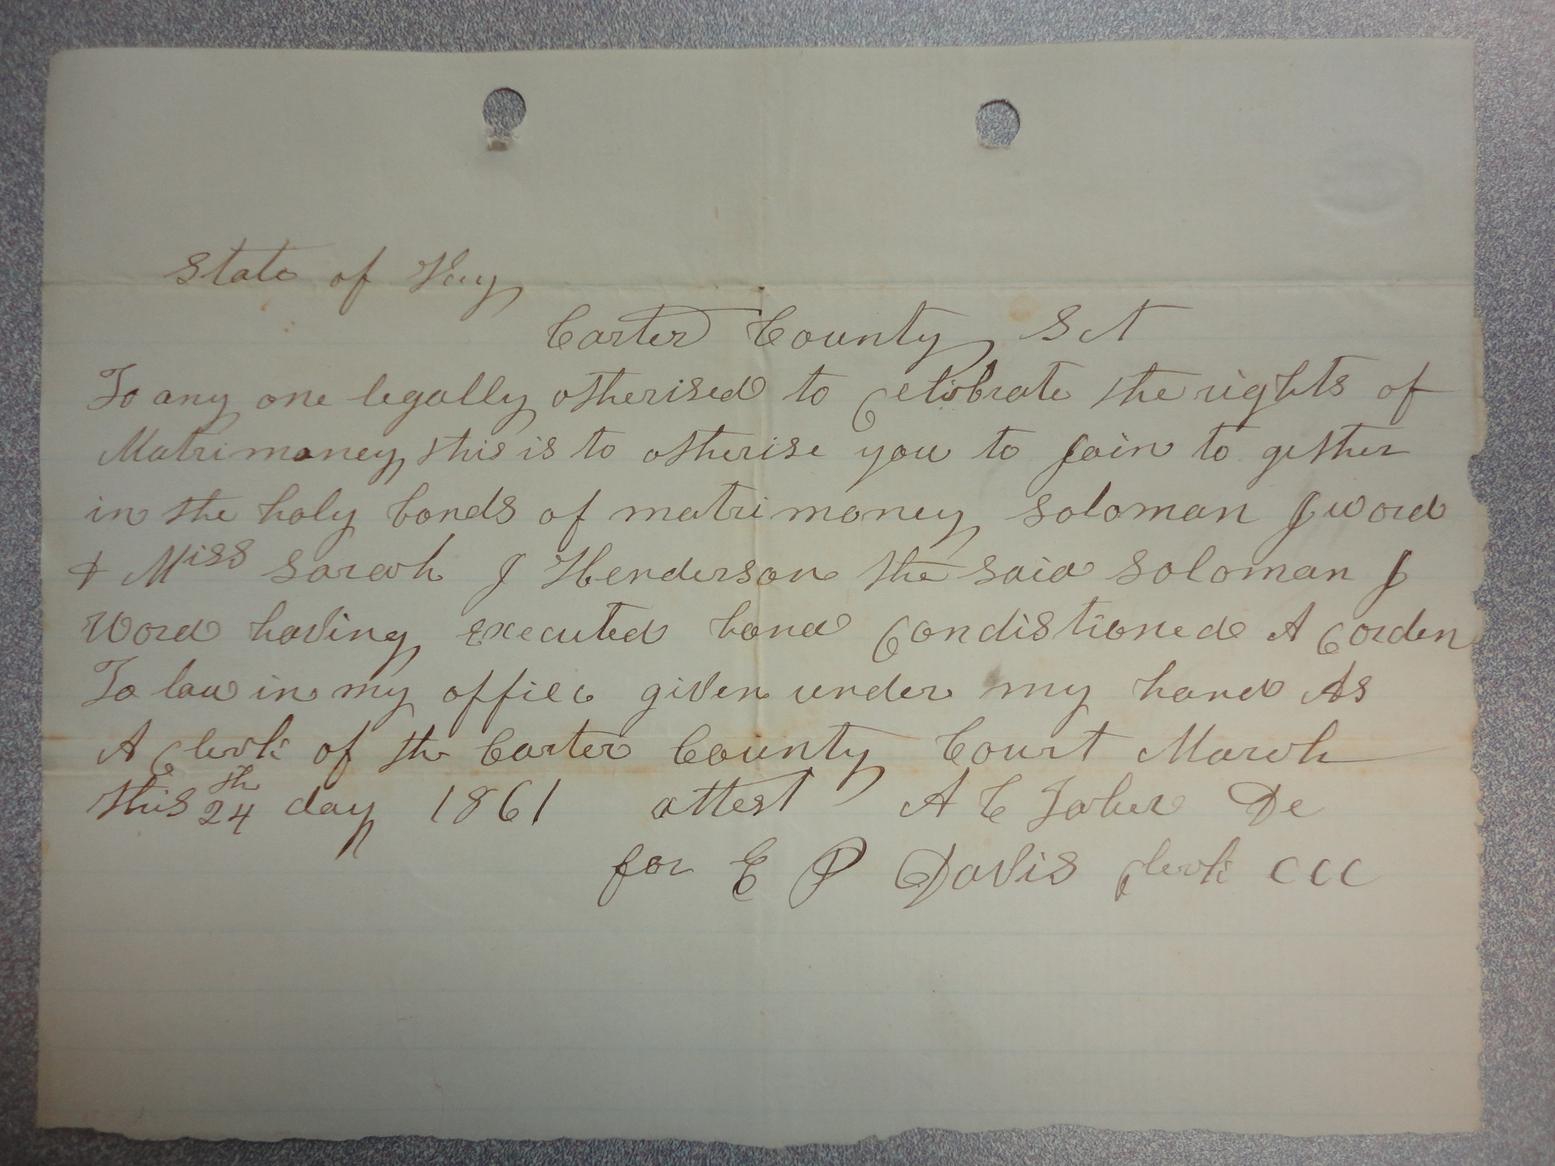 State of Key
Carter County Sct
To any one legally otherised to Celibrate the rights of
Matrimoney this is to otherise you to Join to gether
in the holy bonds of matrimoney Soloman J Word
& Miss Sarah J Henderson the said Soloman J
Word having executed bond Condistioned A Corden
To law in my office given under my hand As
A Clerk of the Carter County Court March
this 24th day 1861 attest A C Taber Dc
for E P Davis Clerk CCC